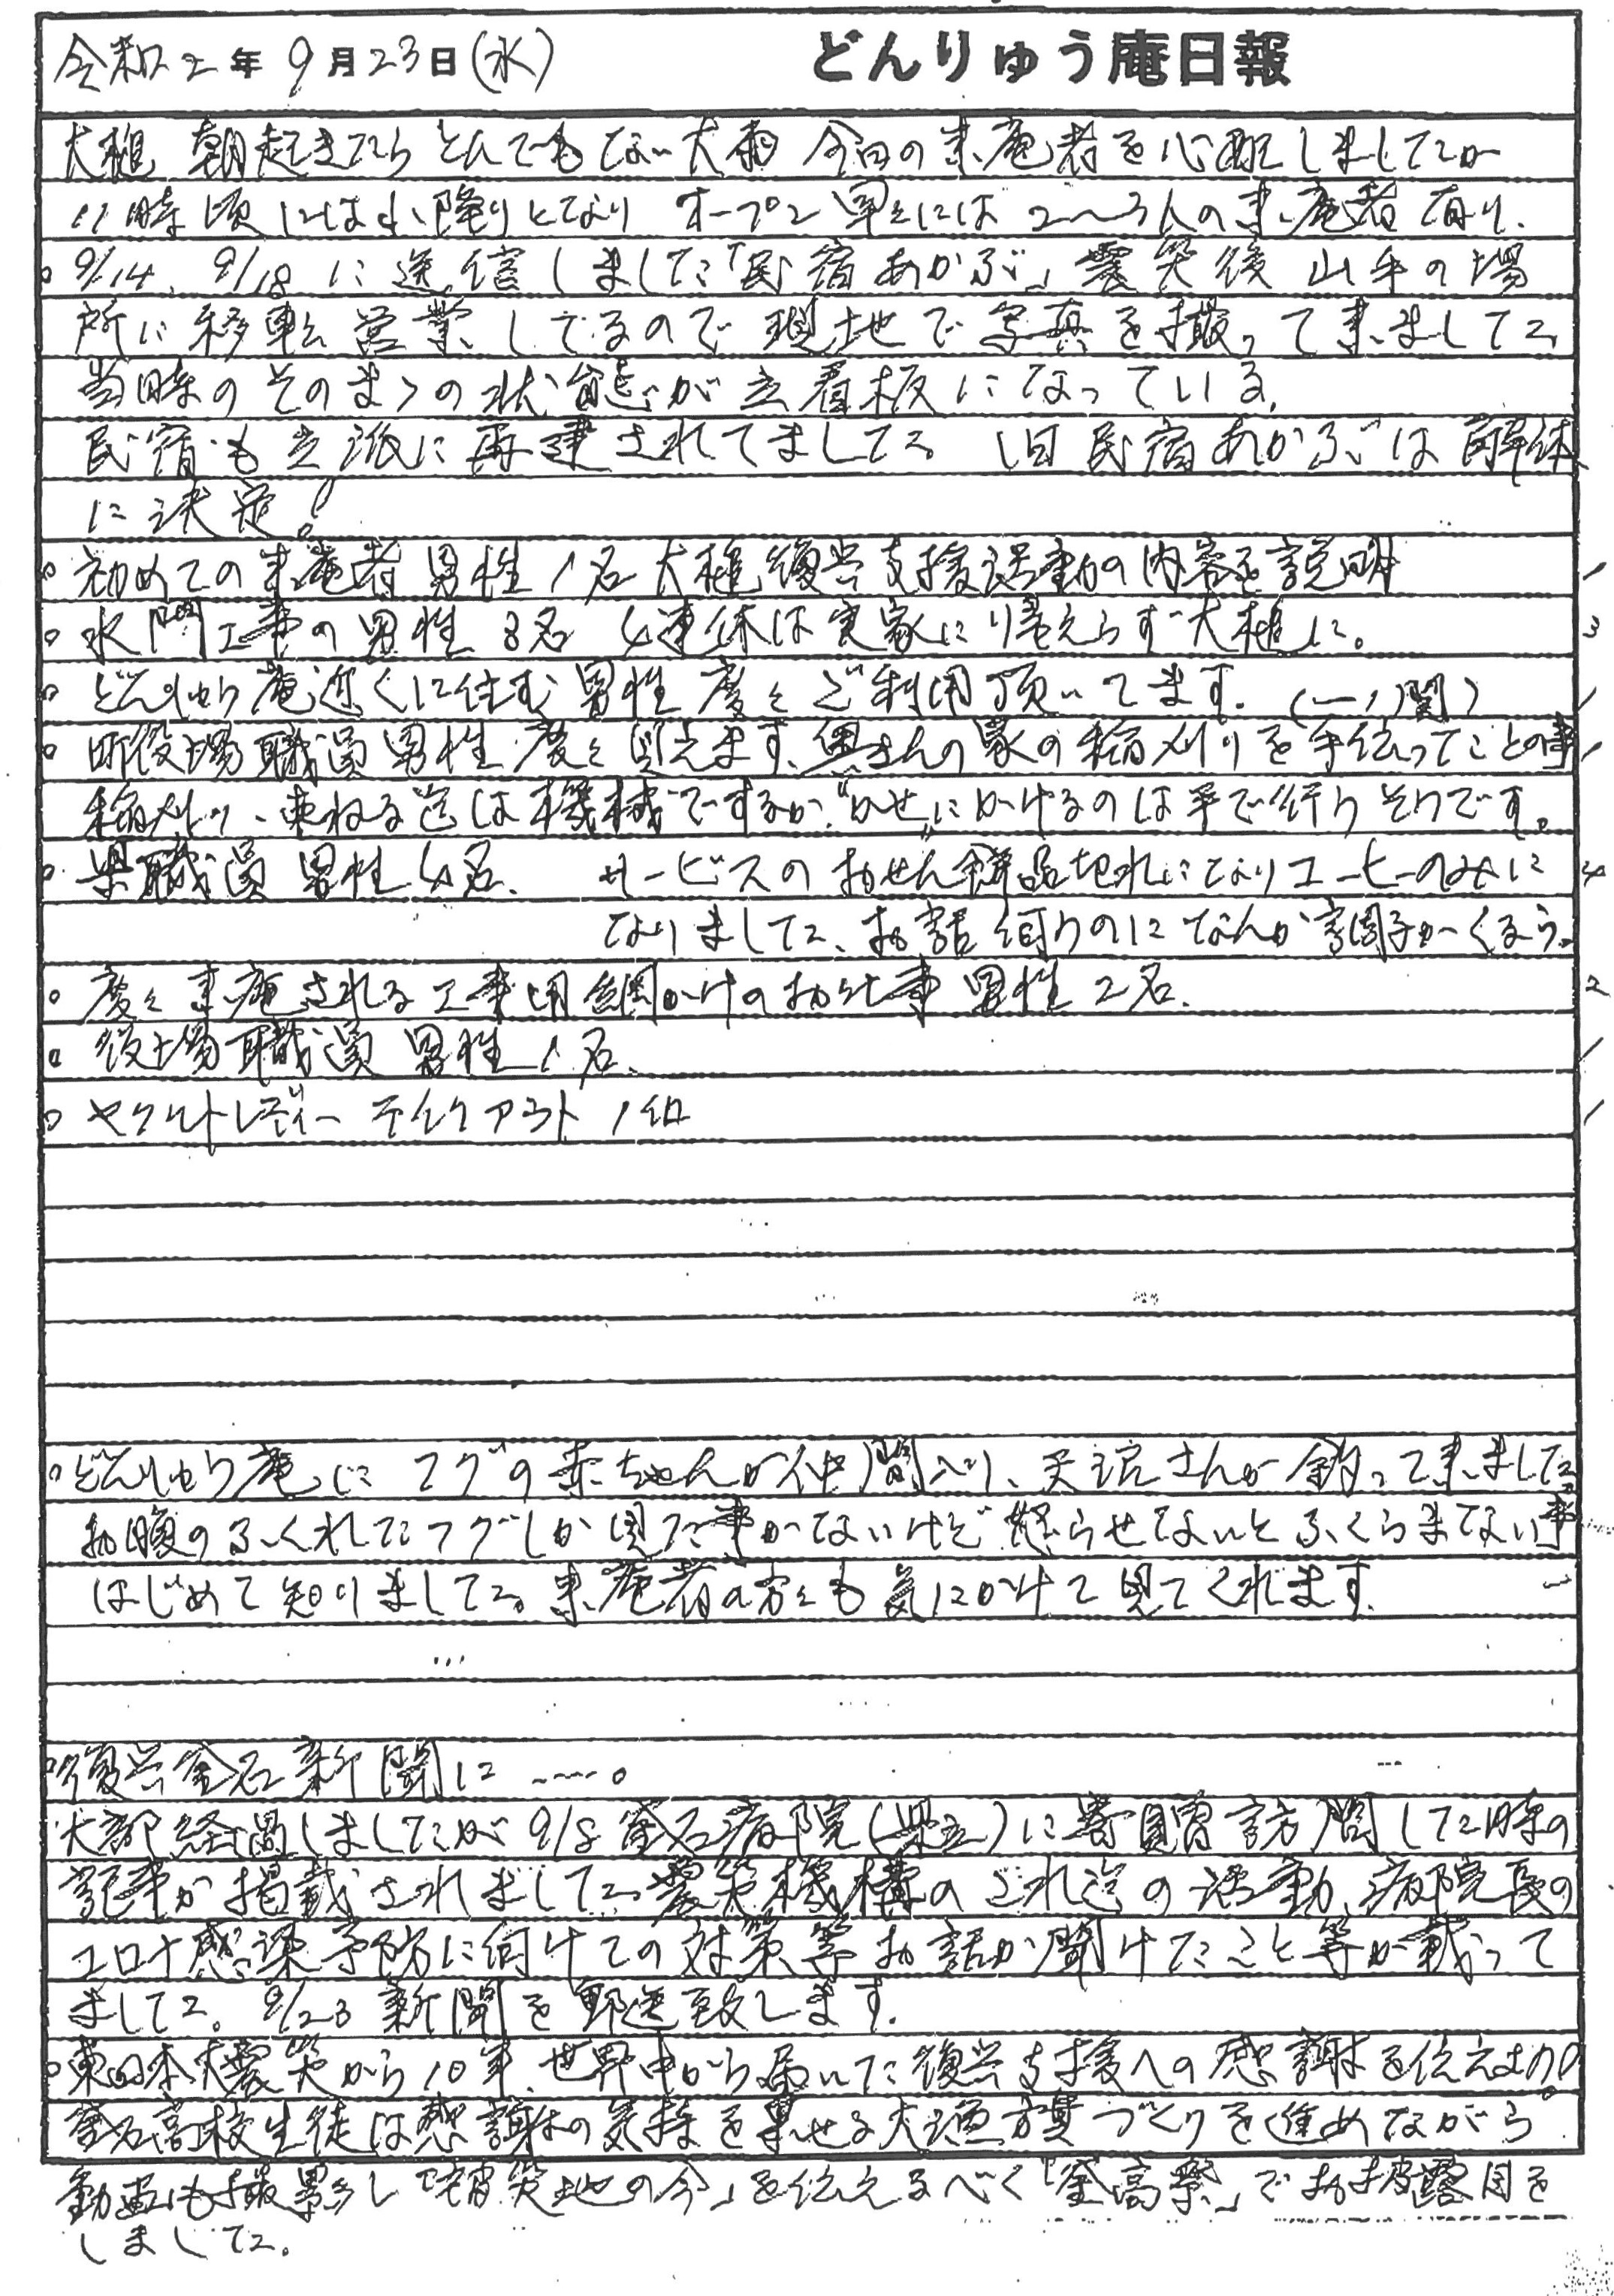 令和2年9月23日(水) どんりゅう庵日報
大槌 朝起きたらとんでもない大雨 今日の来庵者を心配しましたが
11時頃には小降りとなり オープン早々には2〜3人の来庵者有り、
○9/14、9/18に送信しました「民宿あかぶ」震災後 山手の場
所に移転営業してるので現地で写真を撮って来ました
当時のそのまゝの状態が立看板になっている。
民宿も立派に再建されてました。旧民宿あかぶは解体
に決定!
○初めての来庵者 男性1名 大槌復興支援活動の内容を説明 1
○水門工事の男性3名 4連休は実家に帰えらず大槌に。 3
○どんりゅう庵近くに住む男性 度々ご利用頂いてます。 1
○町役場職員男性 度々見えます、奥さんの家の稲刈りを手伝ってとの事 1
稲刈り、束ねる迄は機械でするが、"かせ"にかけるのは手で行うそうです。
○県職員 男性4名、 サービスのおせん餅品切れになりコーヒーのみに 4
なりました、お話伺うのになんか調子がくるう。
○度々来庵される工事用網かけのお仕事 男性2名、 2
○役場職員 男性1名、 1
○ヤクルトレディー テイクアウト1名 1
○どんりゅう庵にフグの赤ちゃんが仲間入り、天沼さんが釣って来ました。
お腹のふくれたフグしか見た事がないけど怒らせないとふくらまない事
はじめて知りました。来庵者の方々も気にかけて見てくれます。
○復興釜石新聞に -----。
大部経過しましたが9/8釜石病院(県立)に寄贈訪問した時の
記事が掲載されました。震災機構のこれ迄の活動、病院長の
コロナ感染予防に向けての対策等お話が聞けたこと等が載って
ました。9/23新聞を郵送致します。
○東日本大震災から10年、世界中から届いた復興支援への感謝を伝えよう!
釜石高校生徒は感謝の気持を乗せる大漁旗づくりを進めながら
動画も撮影し「被災地の今」を伝えるべく「釜高祭」でお披露目を
しました。